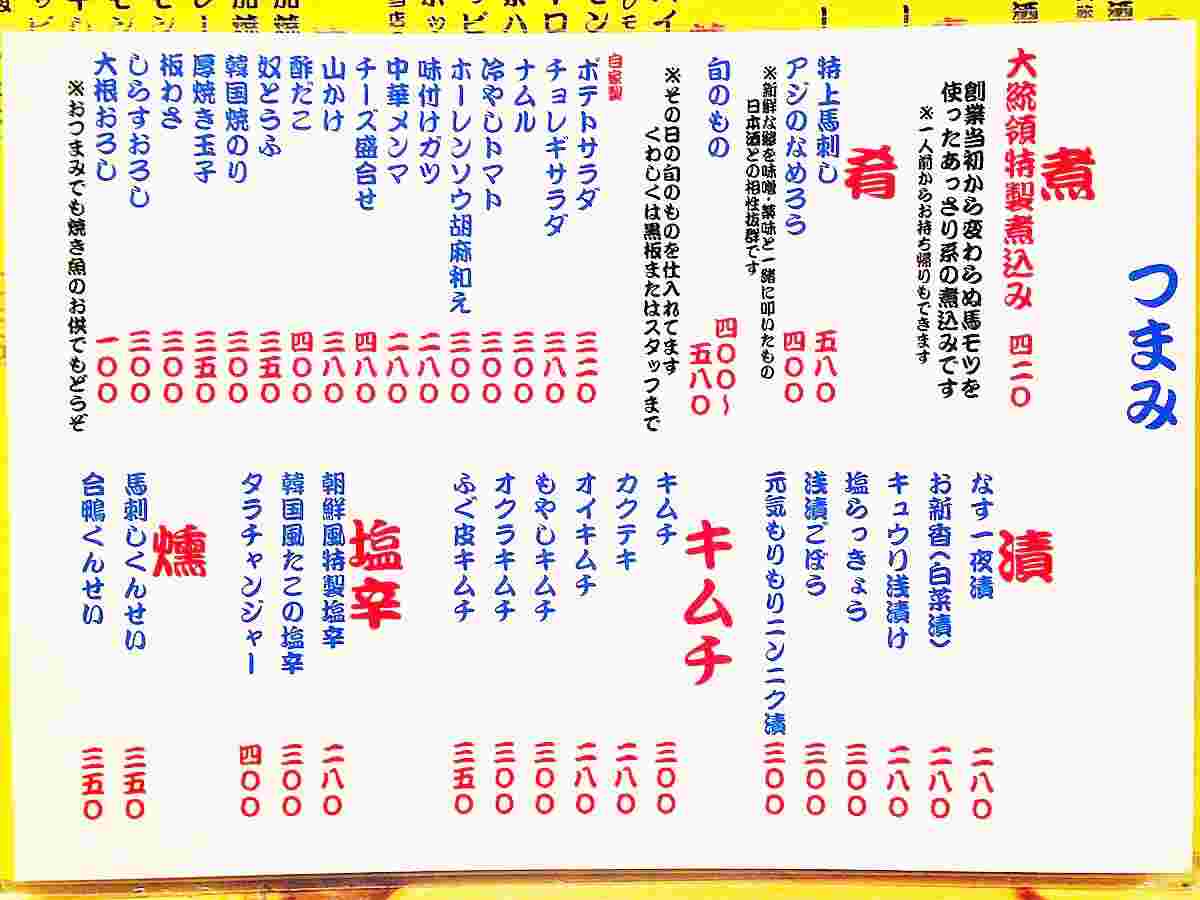 つまみ
煮
大統領特製煮込み 四二〇
創業当初から変わらぬ馬モツを
使ったあっさり系の煮込みです
※一人前からお持ち帰りもできます
肴
特上馬刺し 五八〇
アジのなめろう 四〇〇
※新鮮な鯵を味噌・薬味と一緒に叩いたもの
日本酒との相性抜群です
旬のもの 四〇〇〜
五八〇
※その日の旬のものを仕入れてます
くわしくは黒板またはスタッフまで
自家製
ポテトサラダ 三二〇
チョレギサラダ 三八〇
ナムル 三〇〇
冷やしトマト 三〇〇
ホーレンソウ胡麻和え 三〇〇
味付けガツ 二八〇
中華メンマ 二八〇
チーズ盛合せ 四八〇
山かけ 三八〇
酢だこ 四〇〇
奴とうふ 三五〇
韓国焼のり 二〇〇
厚焼き玉子 三五〇
板わさ 三〇〇
しらすおろし 三〇〇
大根おろし 一〇〇
※おつまみでも焼き魚のお供でもどうぞ
漬
なす一夜漬 二八〇
お新香(白菜漬) 二八〇
キュウリ浅漬け 二八〇
塩らっきょう 三〇〇
浅漬ごぼう 三〇〇
元気もりもりニンニク漬 三〇〇
キムチ
キムチ 三〇〇
カクテキ 二八〇
オイキムチ 二八〇
もやしキムチ 三〇〇
オクラキムチ 三〇〇
ふぐ皮キムチ 三五〇
塩辛
朝鮮風特製塩辛 二八〇
韓国風たこの塩辛 三〇〇
タラチャンジャー 四〇〇
燻
馬刺しくんせい 三五〇
合鴨くんせい 三五〇